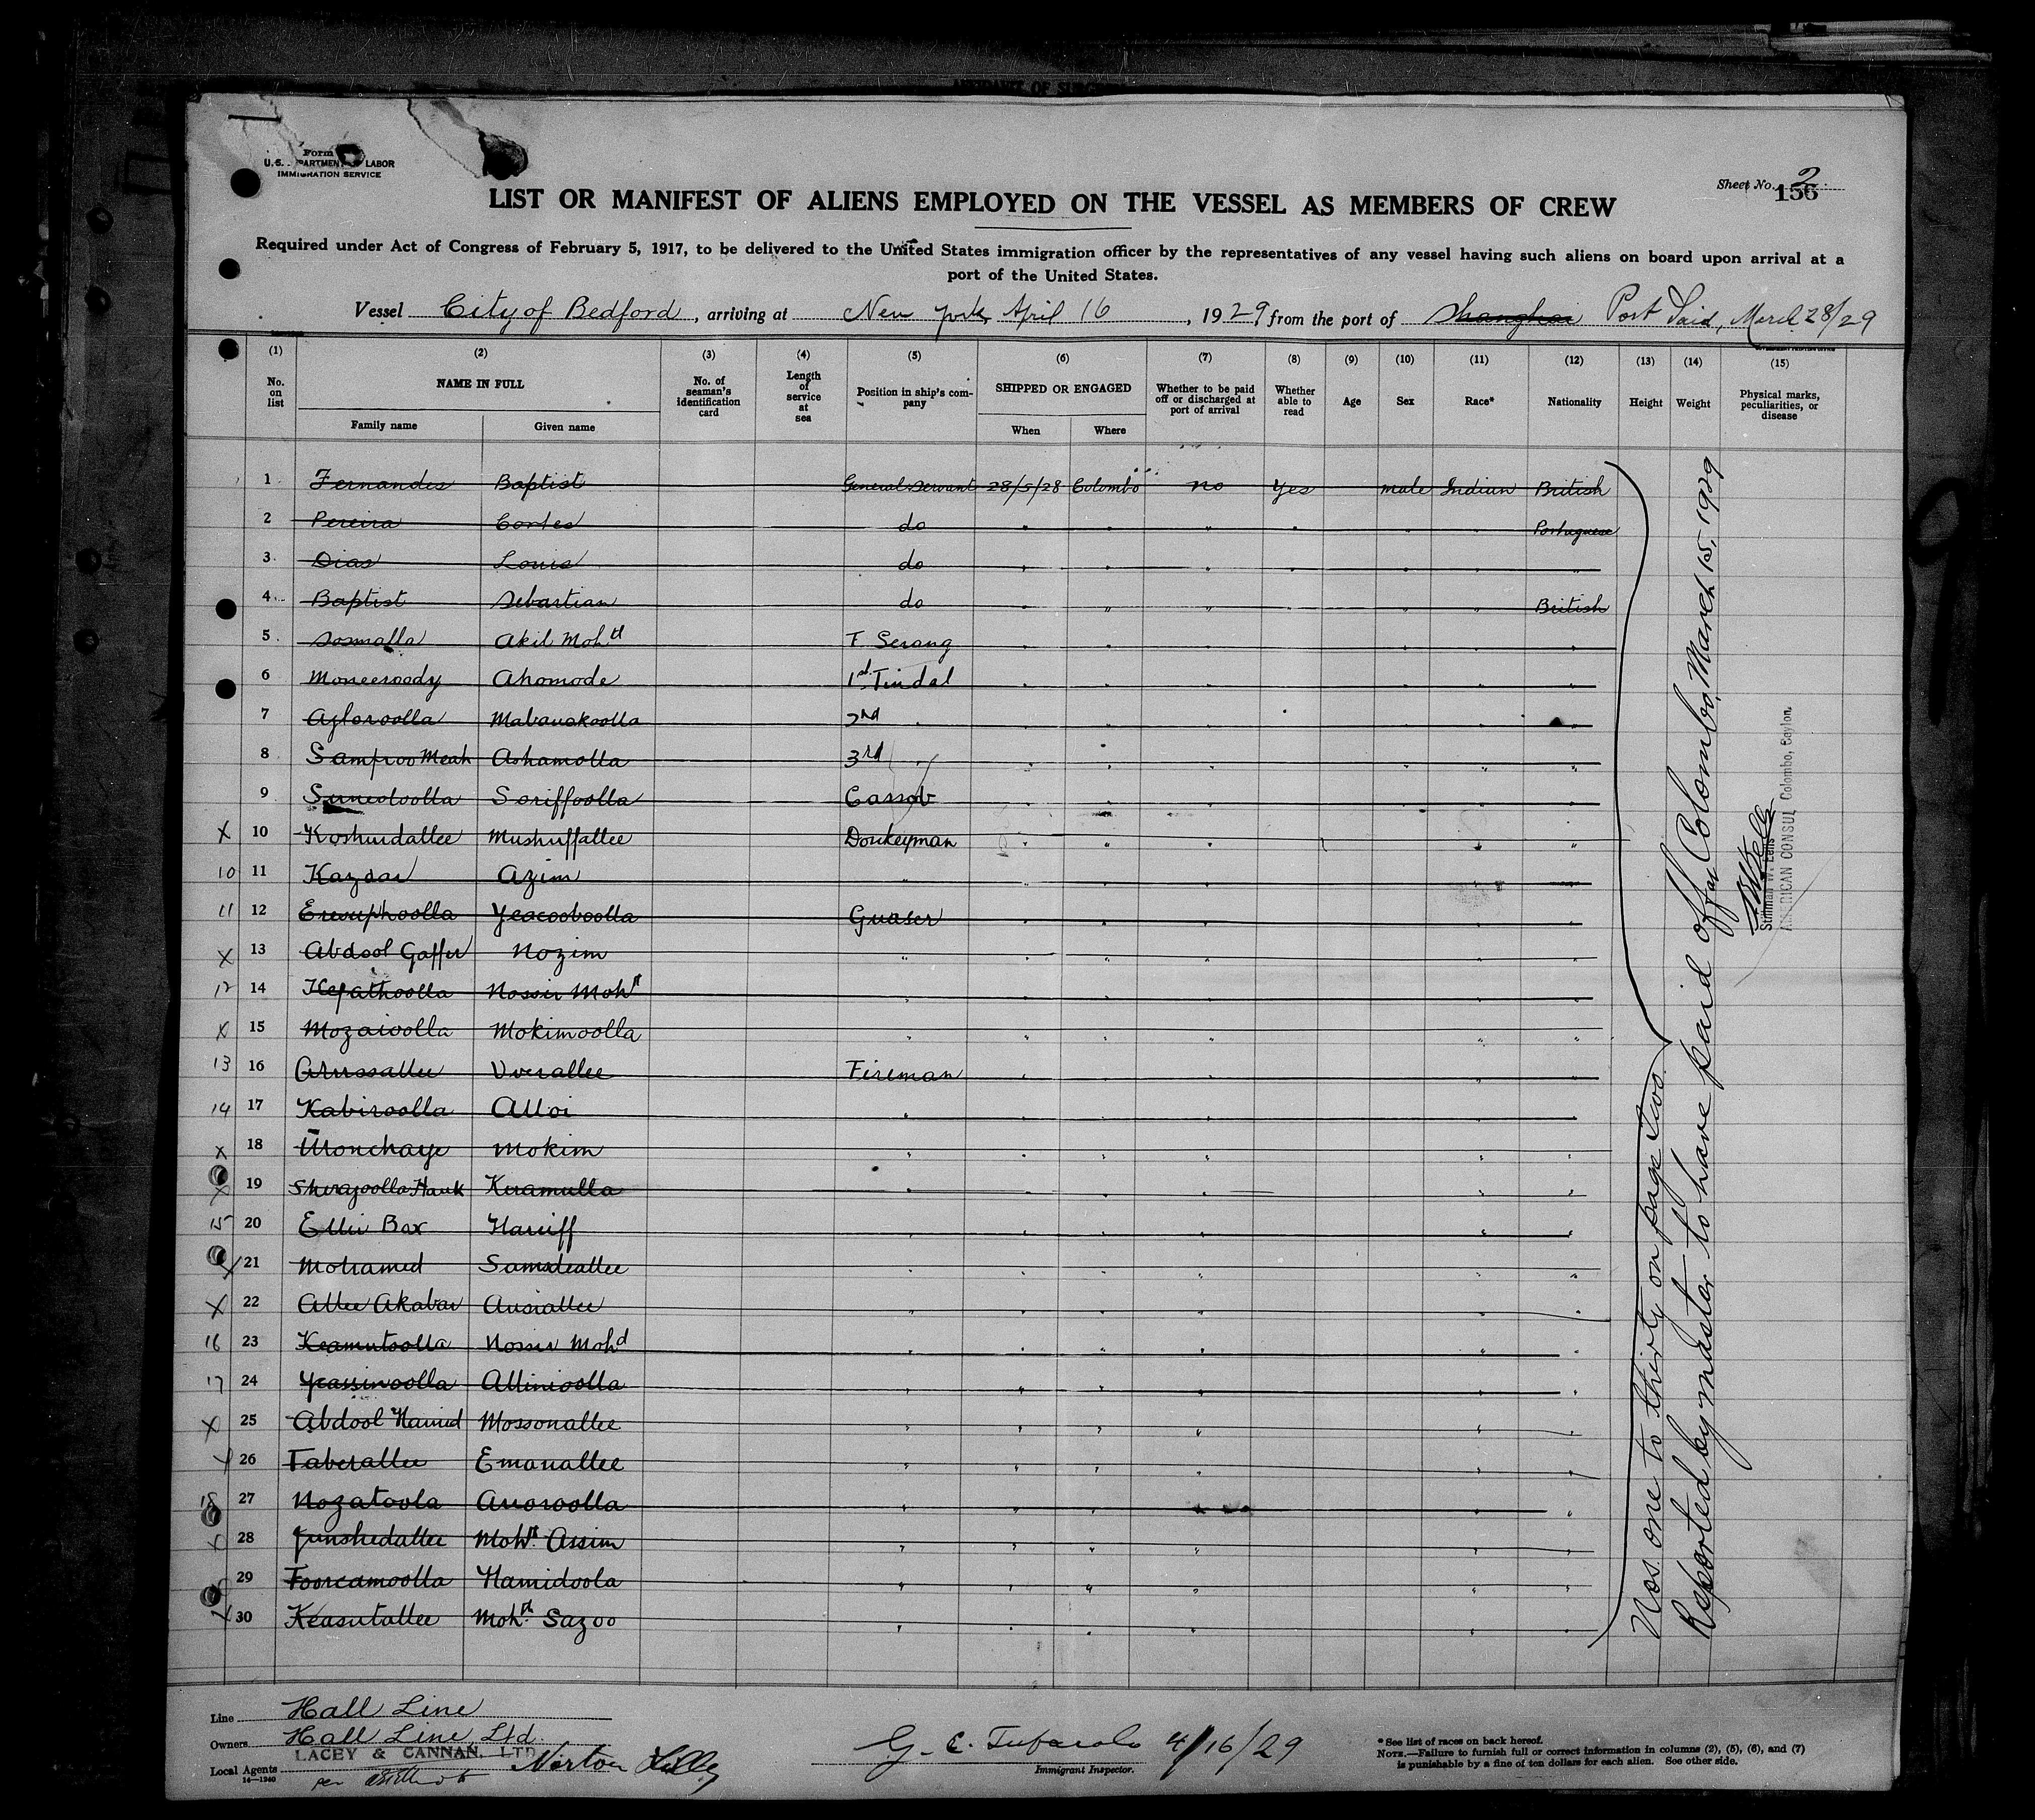 AFFIDAVIT OF SURG
Form
U.S. DEPARTMENT OF LABOR
IMMIGRATION SERVICE
Sheet No. 2
156
LIST OR MANIFEST OF ALIENS EMPLOYED ON THE VESSEL AS MEMBERS OF CREW
Required under Act of Congress of February 5, 1917, to be delivered to the United States immigration officer by the representatives of any vessel having such aliens on board upon arrival at a
port of the United States.
Vessel City of Bedford, arriving at New York, April 16, 1929 from the port of Shanghai Port Said, March 28/29
(1) (2) (3) (4) (5) (6) (7) (8) (9) (10) (11) (12) (13) (14) (15)
No. on list NAME IN FULL No. of seaman's identification card Length of service at sea Position in ship's company SHIPPED OR ENGAGED Whether to be paid off or discharged at port of arrival Whether able to read Age Sex Race* Nationality Height Weight Physical marks, peculiarities, or disease
Family name Given name When Where
1 Fernandes Baptist General Servant 28/5/28 Colombo no Yes male Indian British
2 Pereira Cortes do " " " " " " Portuguese
3 Dias Louis do " " " " " " "
4 Baptist Sebastian do " " " " " " British
5 Sosmalla Akil Mohd F. Serang
6 Moneeroody Ahomode 1st Tindal
7 Afloroolla Mabauskoolla 2nd "
8 Samproo Meah Ashamolla 3rd "
9 Suneoloolla Soriffoolla Cassab
X 10 Koshuidallee Mushuffallee Donkeyman
10 11 Kazdar Azim "
11 12 Erewuphoolla Yeacooboolla Greaser
X 13 Abdool Gaffer Nozim "
12 14 Kefathoolla Nossir Mohd "
X 15 Mozaioolla Mokimoolla "
13 16 Arussallee Uverallee Fireman
14 17 Kabiroolla Alloi "
X 18 Monchaye Mokim "
X 19 Sherajoolla Hauk Keramulla "
15 20 Ellie Box Hariff "
X 21 Mohamed Samsdeallee "
X 22 Allee Akabar Ausiallee "
16 23 Keamutoolla Nossir Mohd "
17 24 Yeassinoolla Allinioolla "
X 25 Abdool Hamid Mossonallee "
X 26 Taberallee Emanallee "
18 27 Nozatoola Auoroolla "
X 28 Junshedallee Mohd. Assim "
29 Foorcamoolla Hamidoola "
X 30 Keasutallee Mohd. Sazoo "
Nos. one to thirty on page two
Reported by master to have paid off at Colombo, March 15, 1929
Stillman W. Eells
AMERICAN CONSUL Colombo, Ceylon.
Line Hall Line
Owners Hall Line, Ltd.
LACEY & CANNAN, LTD
Local Agents Norton Lilly
per
14—1240
G. E. Tufarolo 4/16/29
Immigrant Inspector.
* See list of races on back hereof.
NOTE.—Failure to furnish full or correct information in columns (2), (5), (6), and (7)
is punishable by a fine of ten dollars for each alien. See other side.
9